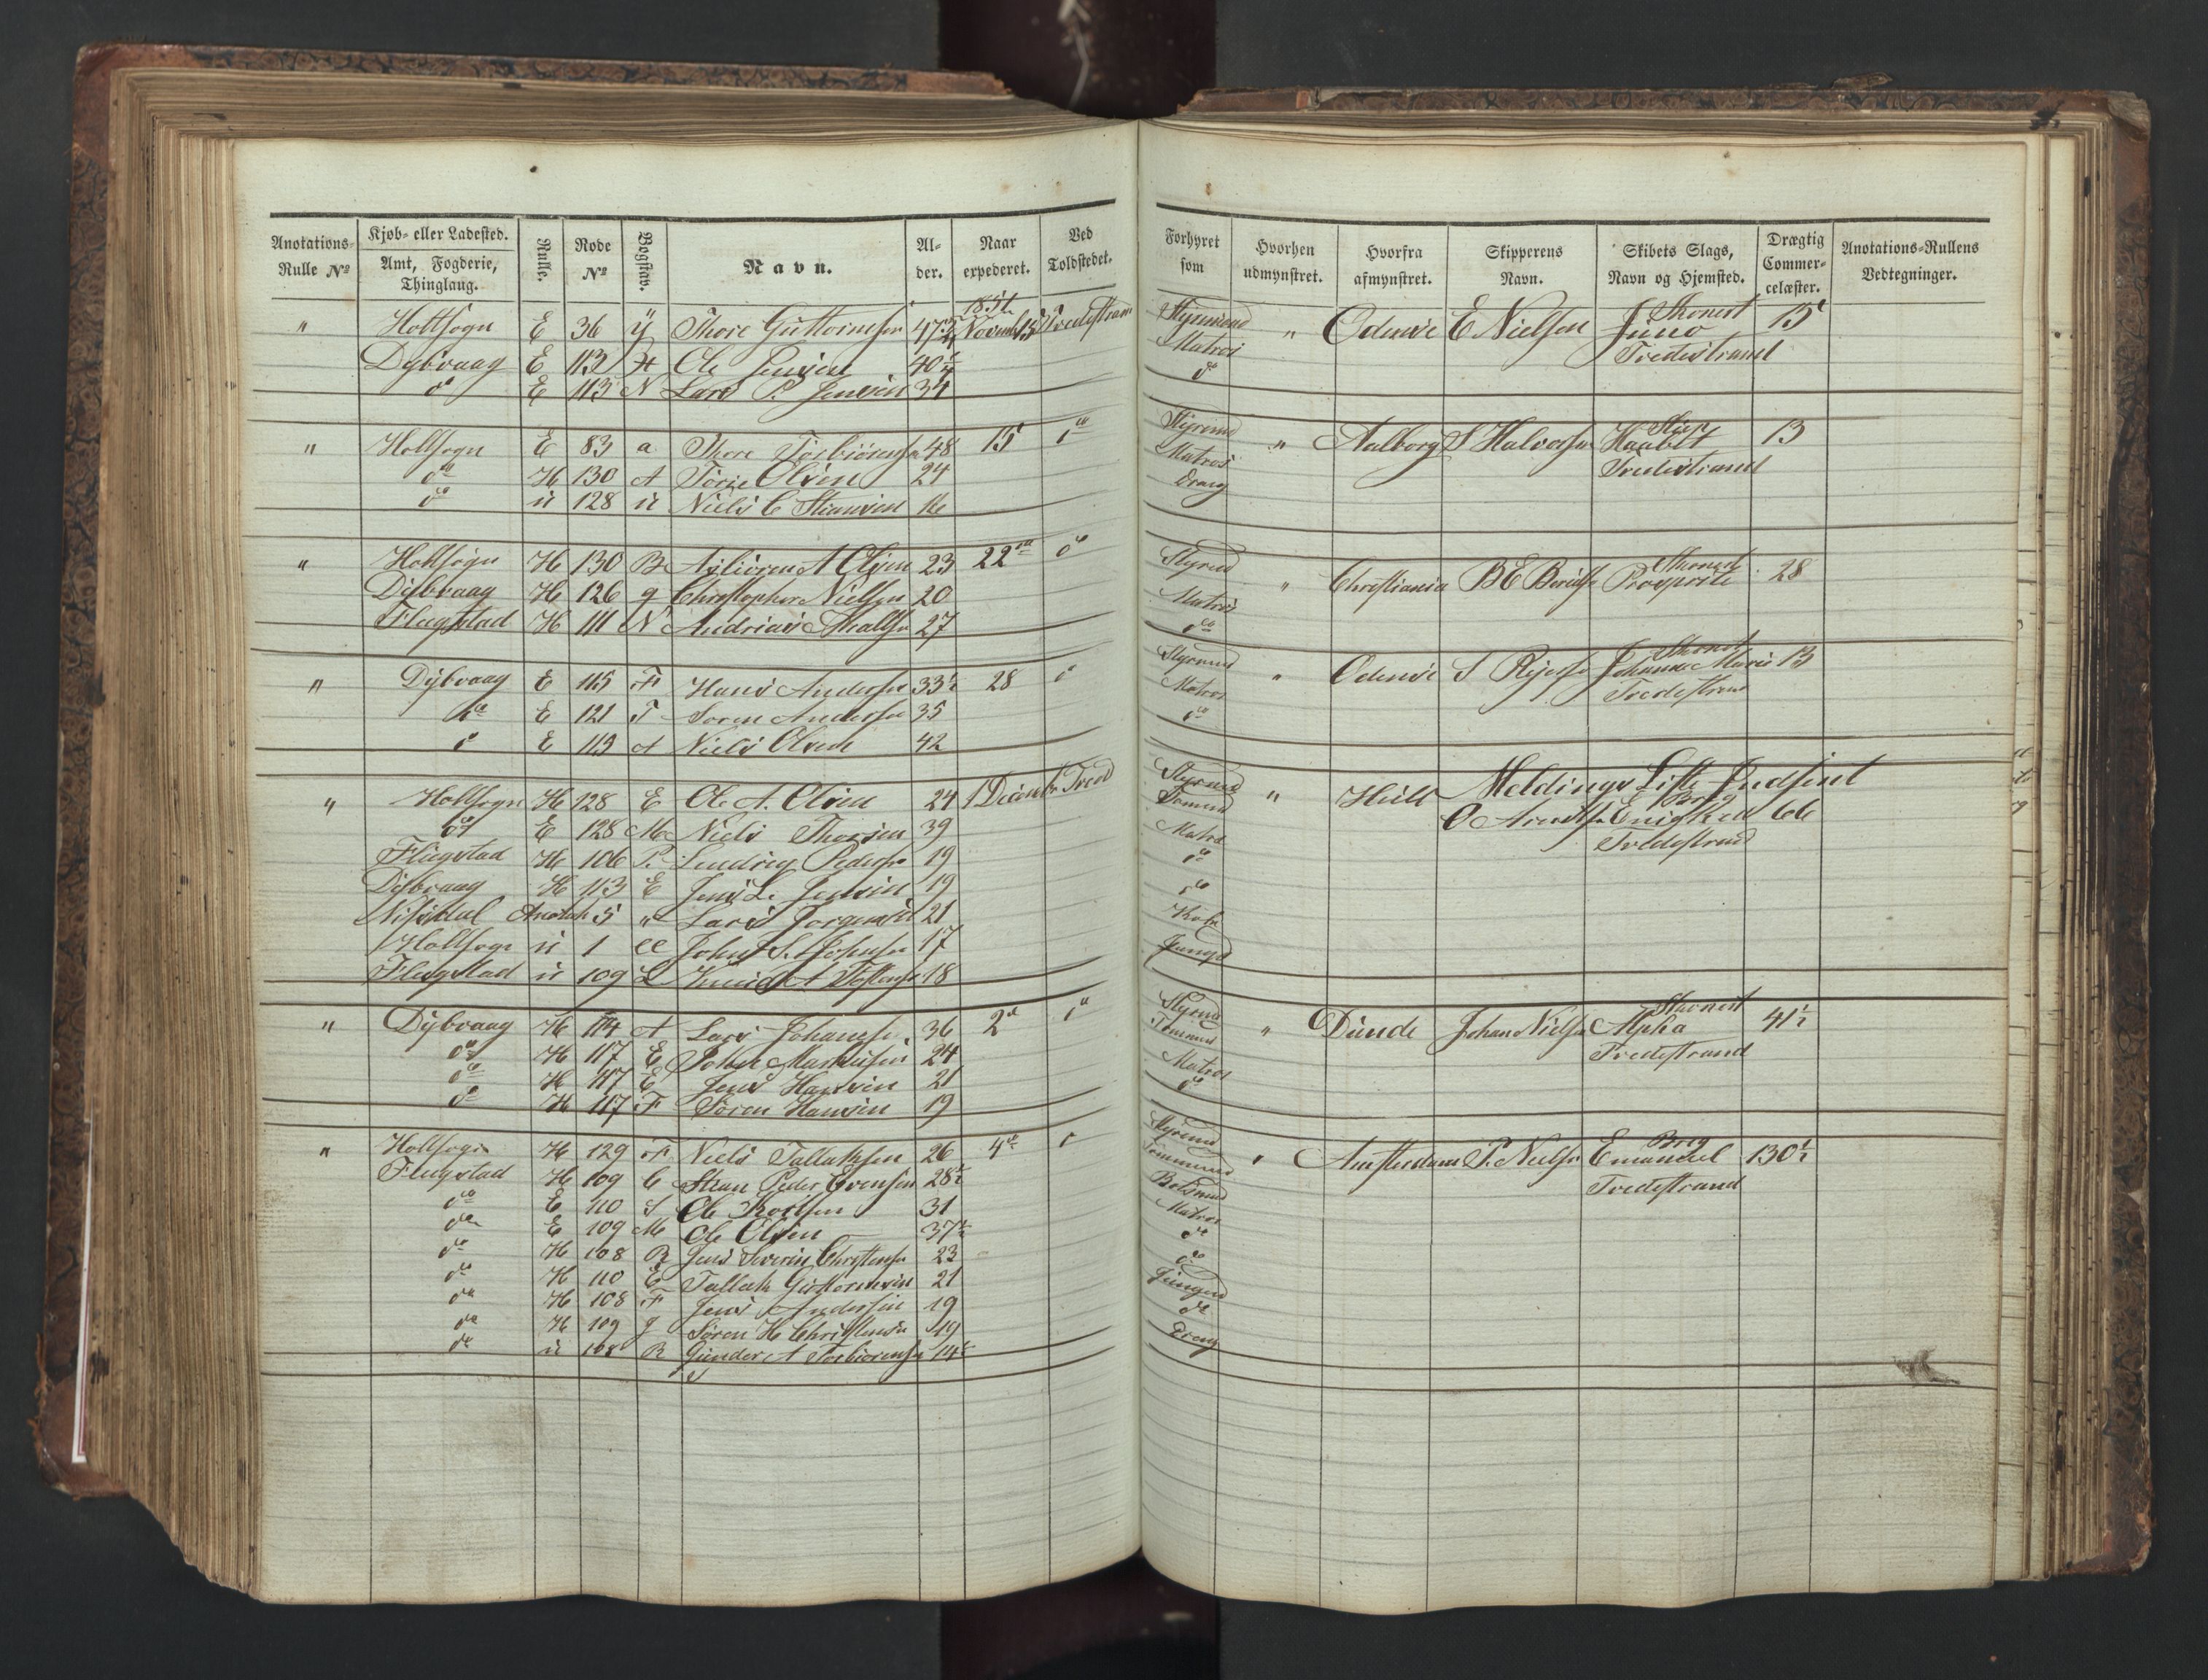 Anotations-Rulle No | Kjøb- eller Ladested. Amt, Fogderie, Thinglaug. | Rulle. | Rode No | Bogstav. | Navn. | Alder. | Naar expederet. | Ved Toldstedet. | Forhyret som | Hvorhen udmynstret. | Hvorfra afmynstret. | Skipperens Navn. | Skibets Slags, Navn og Hjemsted. | Drægtig Commercelæster. | Anotations-Rullens Vedtegninger.
" | Holtsogn | E | 36 | Thore Guttormsen | 47 | 1851 Novemb | Tvedestrand | Styrmand | " | Odense | E Nielsen | Skonert Juno Tvedestrand | 15
Dybvaag | E | 112 | H | Ole Jensen | 40½ | Matros
do | E | 113 | N | Lars P. Jensen | 34 | do
" | Holtsogn | E | 83 | a | Thore Torbiørensen | 48 | 15 | do | Styrmd | " | Aalborg | S Halvorsen | Haabet Tvedestrand | 13
do | H | 130 | A | Terje Olsen | 24 | Matros
do | u | 128 | u | Niels C Stiansen | 16 | Dreng
" | Holtsogn | H | 130 | B | A Olsen | 23 | 22de | do | Styrmd | " | Christiania | B E | Skonert Prosperite | 28
Dybvaag | H | 126 | g | Christopher Nielsen | 20 | Matros
Flagstad | H | 111 | N | Andreas | 27 | do
" | Dybvaag | E | 115 | F | Hans Andersen | 33½ | 28 | d | Styrmd | " | Odense | S | Skonert Johanne Marie Tvedestrand | 13
do | E | 121 | T | Soren Andersen | 35 | Matros
d | E | 119 | A | Niels Olsen | 42 | do
" | Holtsogn | H | 128 | E | Ole A. Olsen | 24 | 1 Decembr | Tved | Styrmd | " | Hull | Meldings Liste Indsent
do | E | 128 | M | Niels Thorsen | 39 | Tømmd | O | Brig Enighed Tvedestrand | 66
Flagstad | H | 106 | P. | Pedersen | 19 | Matros
Dybvaag | H | 113 | E | Jens L. Jensen | 19 | do
5 | " | Lars Jorgensen | 21 | do
Holtsogn | u | 1 | John S. Johnsen | 17 | Kok
Flagstad | u | 109 | L | Knud A | 18 | Jungm
" | Dybvaag | H | 114 | A | Lars Johansen | 36 | 2d | d | Styrmd | " | Dunde | Johan Nielsen | Skonert Alpha Tvedestrand | 41½
do | H | 117 | E | Johan | 24 | Tømmd
do | H | 117 | E | Jens Hansen | 21 | Matros
do | H | 117 | F | Søren Hansen | 19 | do
" | Holtsogn | H | 129 | F | Niels Tallaksen | 26 | 4de | d | Styrmd | " | Amsterdam | P. Nielsen | Brig Emanuel Tvedestrand | 130½
Flagstad | H | 109 | C | Peder Evensen | 28½ | Tømmermd
do | E | 110 | S | Ole | 31 | Botsmd
do | E | 109 | M | Ole Olsen | 37½ | Matros
do | H | 108 | R | Jens Severin Christensen | 23 | do
do | H | 110 | E | Tallak Guttormsen | 21 | do
do | H | 108 | F | Jens Andersen | 19 | Jungmd
do | H | 109 | g | Søren H Christensen | 19 | do
do | u | 108 | R | Gunder A Torbiørensen | 14½ | Dreng